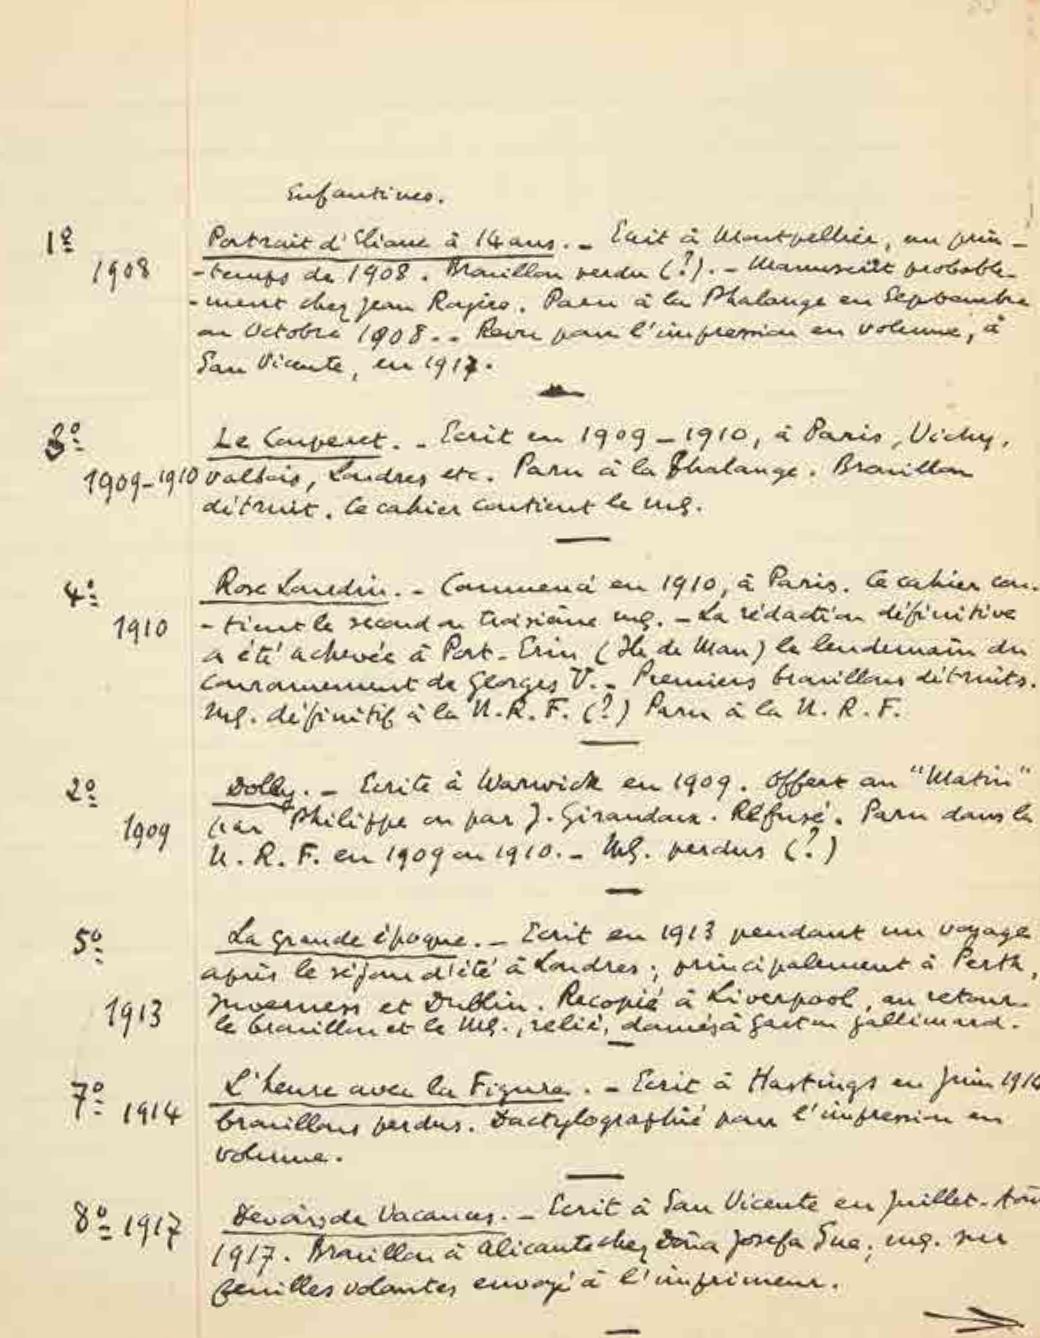 Enfantines.
1º
Portrait d'Eliane à 14 ans. - Ecrit à Montpellier, au prin-
1908
-temps de 1908. Brouillon perdu (?). - Manuscrit probable-
-ment chez Jean Royère. Paru à la Phalange en Septembre
ou Octobre 1908. - Revu pour l'impression en volume, à
San Vicente, en 1917.
3º
Le Couperet. - Ecrit en 1909-1910, à Paris, Vichy,
1909-1910 Valbois, Londres etc. Paru à la Phalange. Brouillon
détruit. Ce cahier contient le mg.
4º
Rose Lourdin. - Commencé en 1910, à Paris. Ce cahier con-
1910
-tient le second ou troisième mg. - La rédaction définitive
a été achevée à Port-Erin (Ile de Man) le lendemain du
couronnement de Georges V. - Premiers brouillons détruits.
Mg. définitif à la N.R.F. (?) Paru à la N.R.F.
2º
Dolly. - Ecrite à Warwick en 1909. Offert au "Matin"
1909
par Philippe ou par J. Giraudoux. Refusé. Paru dans la
N.R.F. en 1909 ou 1910. - Mg. perdus (?)
5º
La grande époque. - Ecrit en 1913 pendant un voyage
après le séjour d'été à Londres; principalement à Perth,
1913
Inverness et Dublin. Recopié à Liverpool, au retour.
le brouillon et le Mg., relié, donnés à Gaston Gallimard.
7º
L'heure avec la Figure. - Ecrit à Hastings en Juin 1914
1914
brouillons perdus. Dactylographié pour l'impression en
volume.
8º 1917
Devoirs de Vacances. - Ecrit à San Vicente en Juillet-Aoû
1917. Brouillon à Alicante chez Doña Josefa Sue; mg. sur
feuilles volantes envoyé à l'imprimeur.